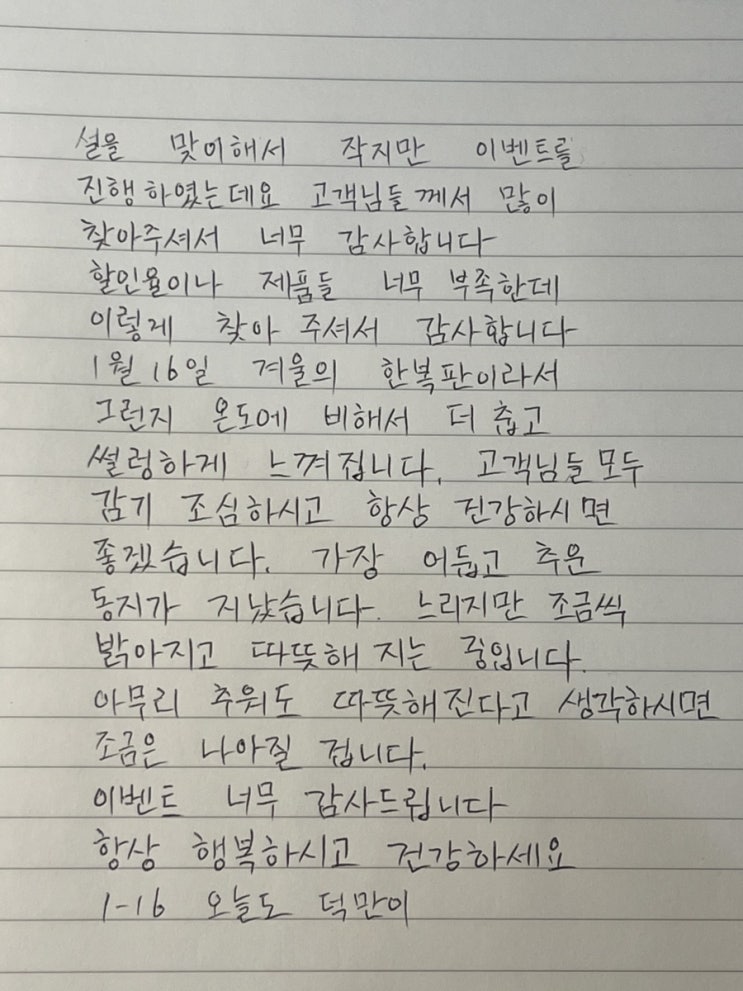 설을 맞이해서 작지만 이벤트를
진행하였는데요 고객님들께서 많이
찾아주셔서 너무 감사합니다
할인율이나 제품들 너무 부족한데
이렇게 찾아 주셔서 감사합니다
1월 16일 겨울의 한복판이라서
그런지 온도에 비해서 더 춥고
썰렁하게 느껴집니다. 고객님들 모두
감기 조심하시고 항상 건강하시면
좋겠습니다. 가장 어둡고 추운
동지가 지났습니다. 느리지만 조금씩
밝아지고 따뜻해 지는 중입니다.
아무리 추워도 따뜻해진다고 생각하시면
조금은 나아질 겁니다.
이벤트 너무 감사드립니다
항상 행복하시고 건강하세요
1-16 오늘도 덕만이